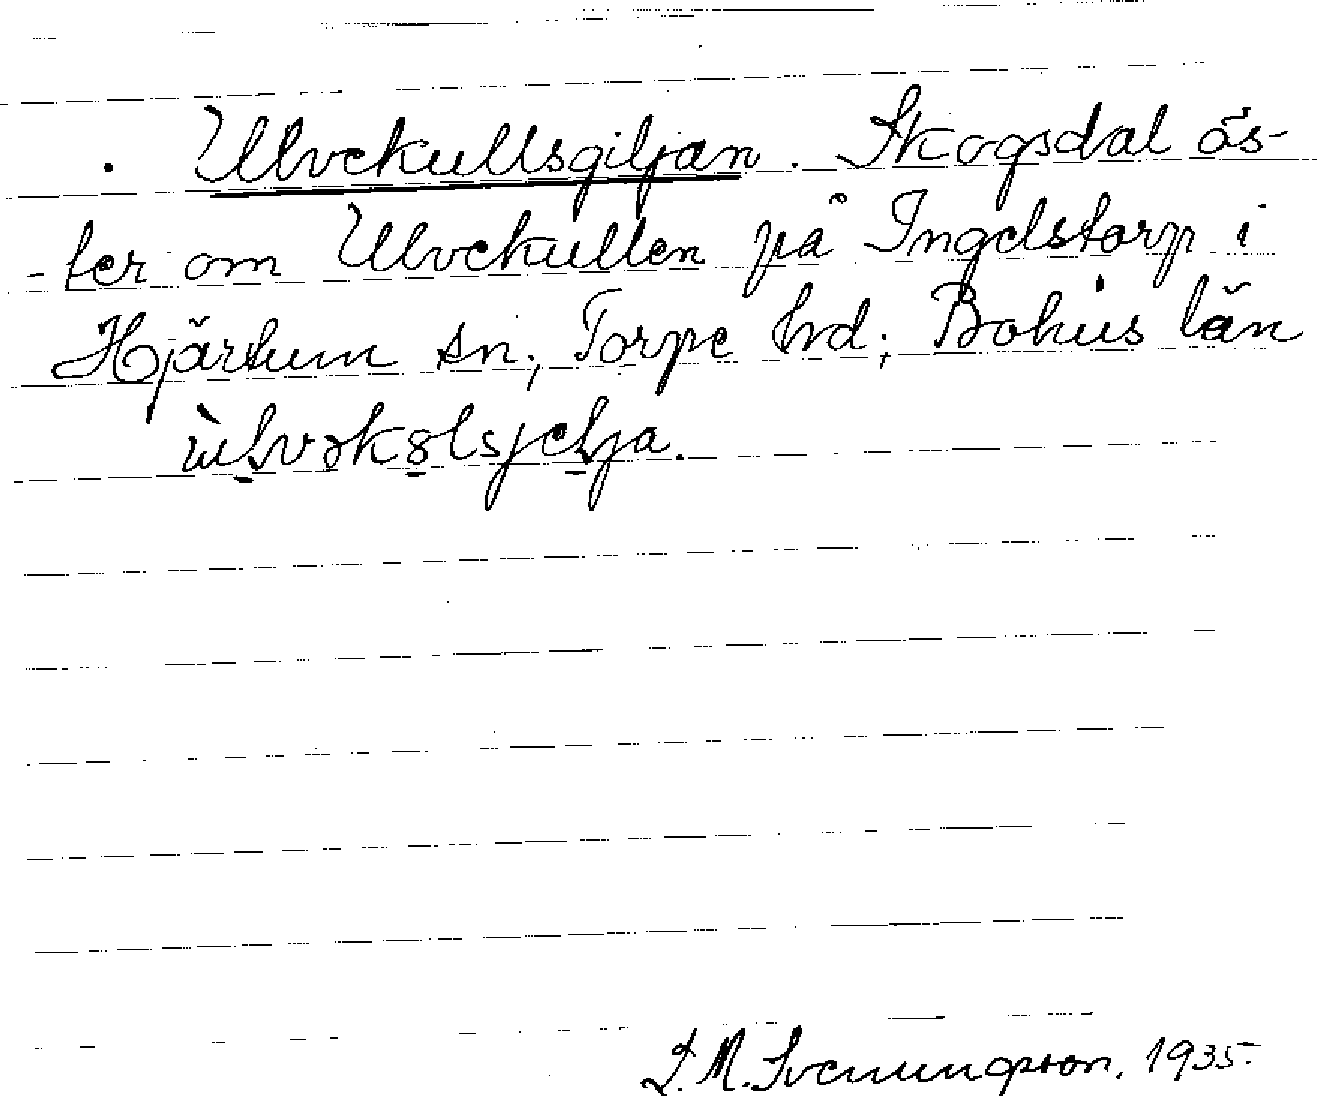 Ulvekullsgiljan. Skogsdal ös-
-ter om Ulvekullen på Ingelstorp i
Hjärtum sn; Torpe hd; Bohus län
J. M. Svenungsson, 1935.